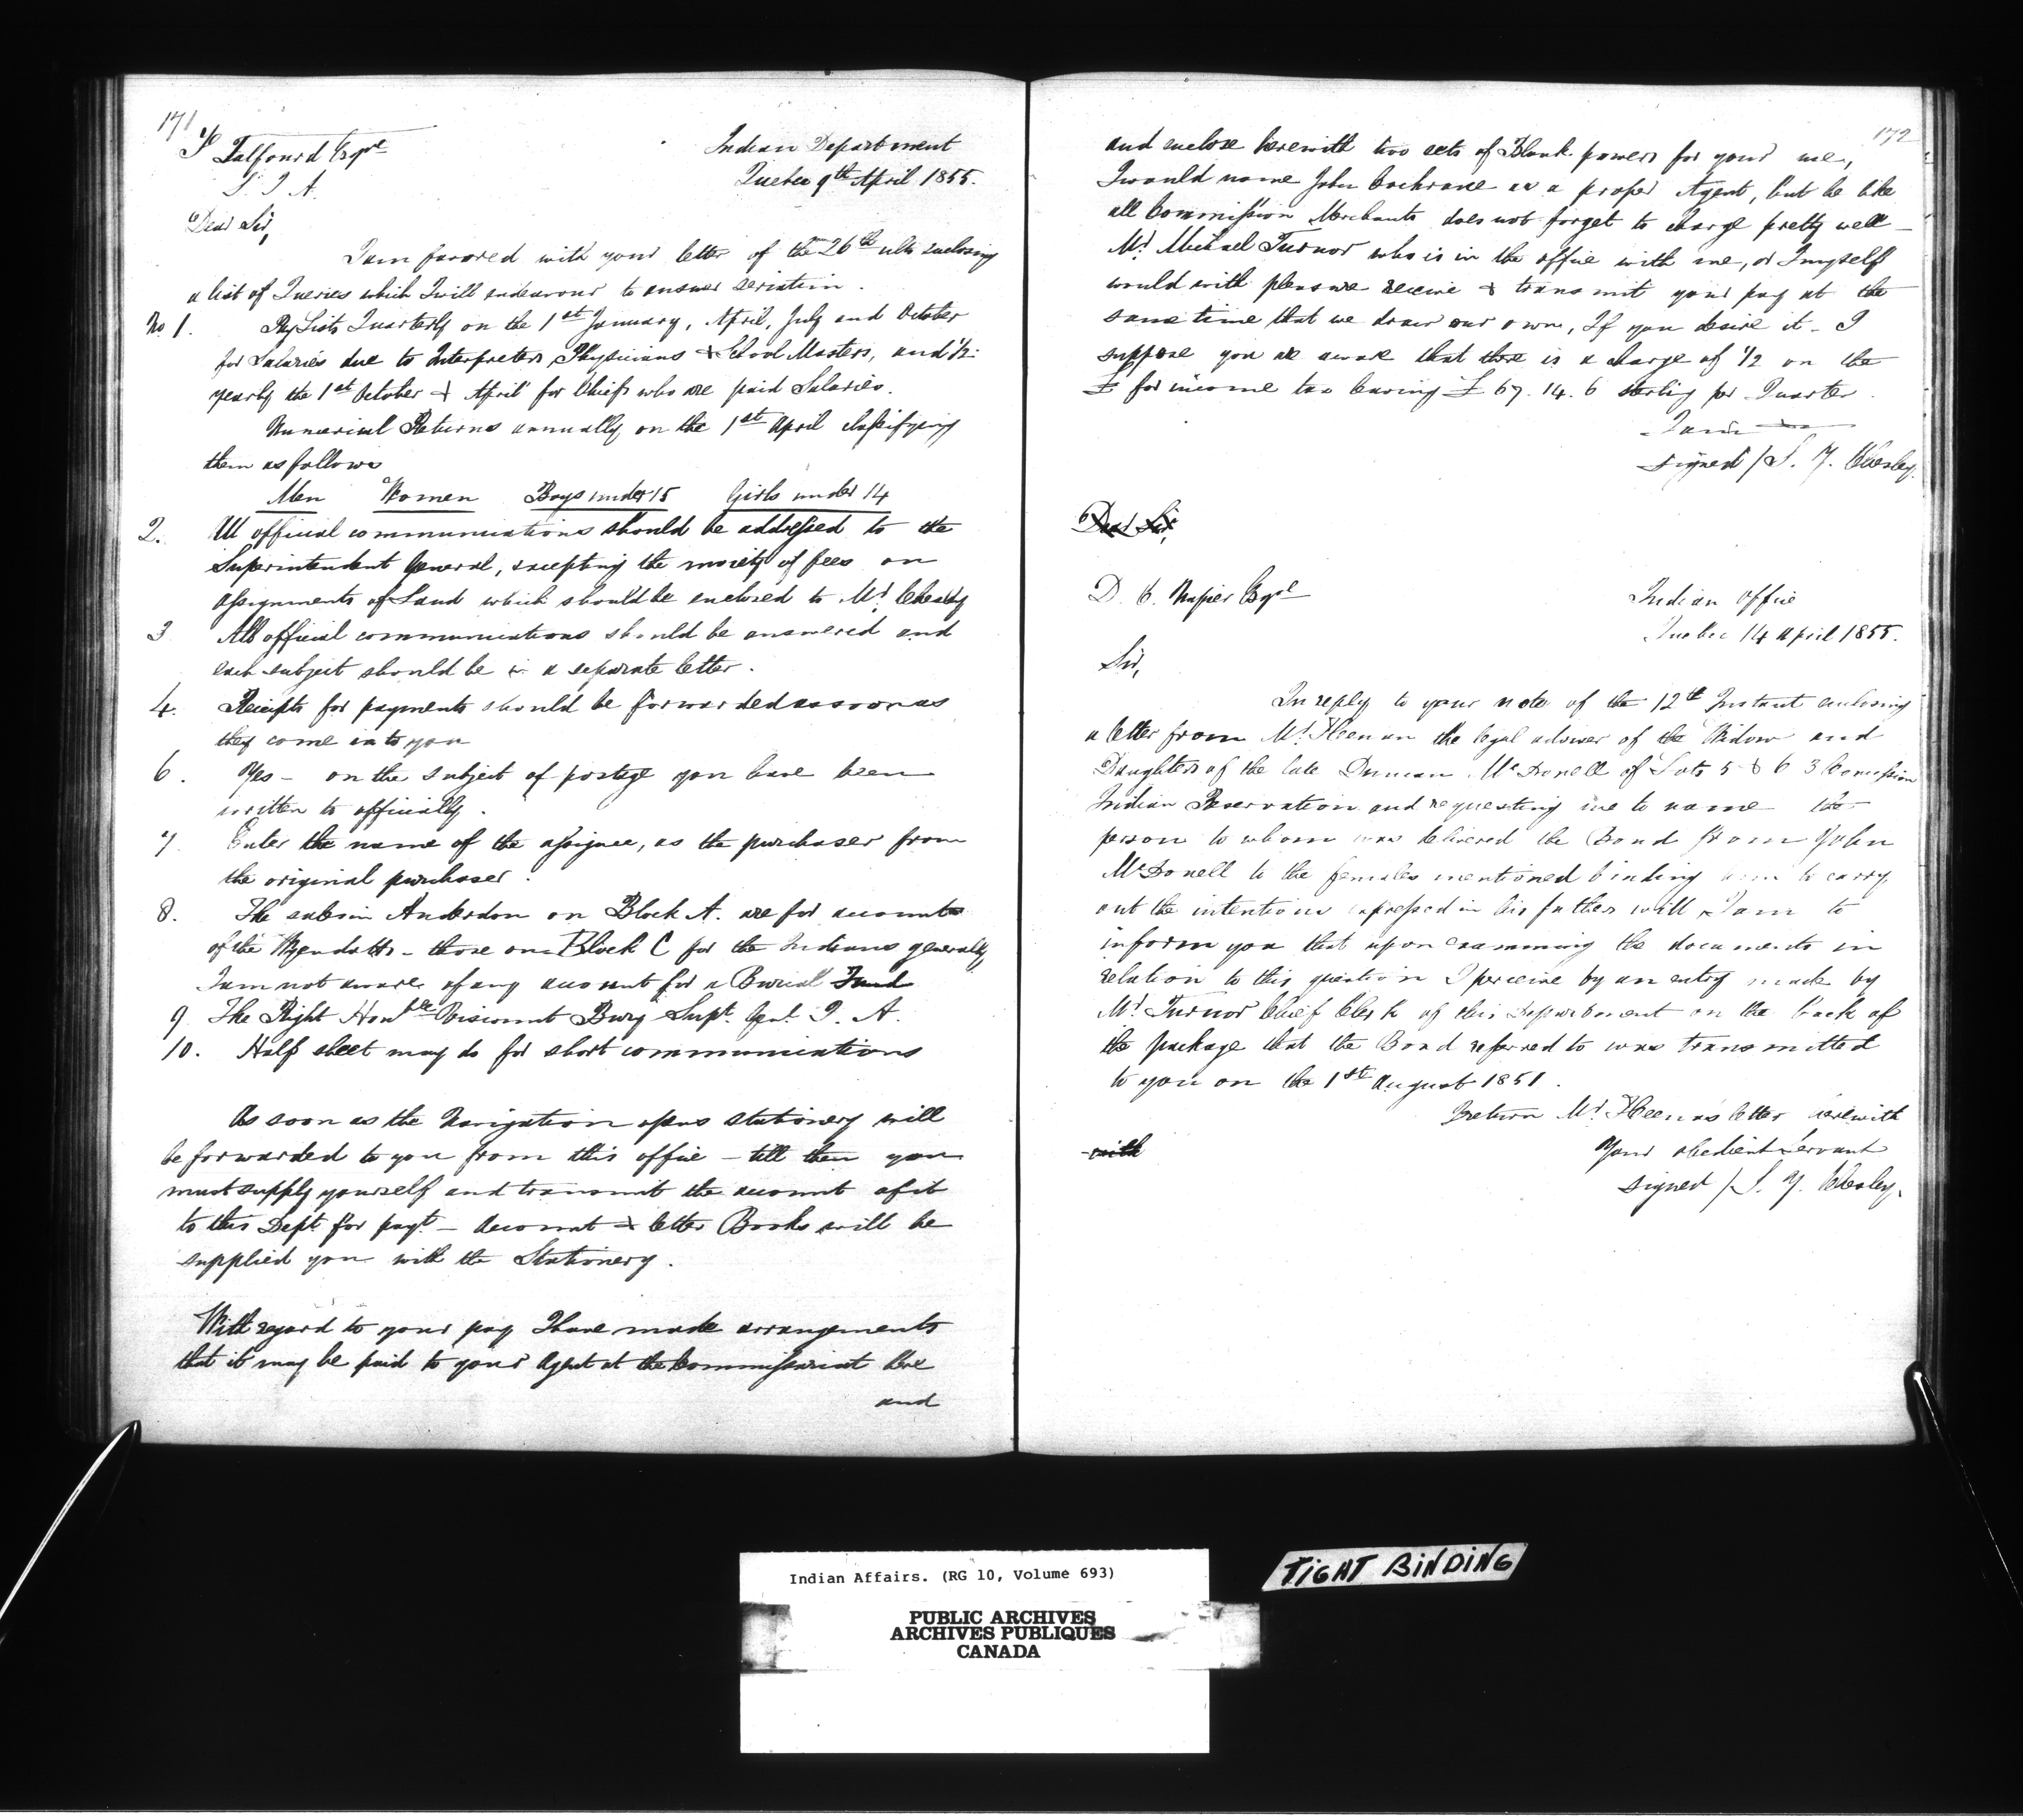 171
Talfourd Esqre
S. I. A.
Indian Department
Quebec 9th April 1855.
Dear Sir,
I am favored with your letter of the 26th ulto enclosing
a list of Queries which I will endeavour to answer seriatim.
No 1. Pay Lists Quarterly on the 1st January, April, July and October
for Salaries due to Interpreters Physicians & School Masters, and 1/2
yearly the 1st October & April for Chiefs who are paid Salaries.
Numerical Returns annually on the 1st April classifying
them as follows
Men Women Boys under 15 Girls under 14
2. All official communications should be addressed to the
Superintendent General, excepting the moiety of fees on
assignments of Land which should be enclosed to Mr Chesley
3 All official communications should be answered and
each subject should be in a separate letter.
4. Receipts for payments should be forwarded as soon as
they come in to you
6. Yes - on the subject of postage you have been
written to officially.
7. Enter the name of the assignee, as the purchaser from
the original purchaser.
8. The sales in Anderdon on Block A. are for account
of the Wyendotts - those on Block C for the Indians generally
I am not aware of any account for a Burial Fund
9 The Right Honble Viscount Bury Supt. Genl. I. A.
10. Half sheet may do for short communications
As soon as the Navigation opens stationery will
be forwarded to you from this office - till then you
must supply yourself and transmit the account of it
to this Dept for payt - Account & letter Books will be
supplied you with the Stationery.
With regard to your pay I have made arrangements
that it may be paid to your Agent at the Commissariat here
and
172
and enclose herewith two sets of Blank powers for your use,
I would name John Cochrane as a proper Agent, but he like
all Commission Merchants does not forget to charge pretty well -
Mr Michael Turnor who is in the office with me, or I myself
would with pleasure receive & transmit your pay at the
same time that we draw our own, If you desire it - I
suppose you are aware that there is a charge of 1/2 on the
£ for income tax leaving £ 67. 14. 6 sterlig per Quarter.
I am
signed / S. Y. Chesley.
Dear Sir,
D. C. Napier Esqre
Indian Office
Quebec 14 April 1855.
Sir,
In reply to your note of the 12th Instant enclosing
a letter from Mr. Heenan the legal adviser of the Widow and
Daughters of the late Duncan McDonell of Lots 5 & 6 3 Concession
Indian Reservation and requesting me to name the
person to whom was delivered the Bond from John
McDonell to the females mentioned binding him to carry
out the intentions expressed in his fathers will, I am to
inform you that upon examining the documents in
relation to this question I perceive by an entry made by
Mr. Turnor Chief Clerk of this Department on the back of
the package that the Bond referred to was transmitted
to you on the 1st August 1851.
I return Mr Heenans letter herewith
with
Your obedient Servant
signed / S. Y. Chesley.
Indian Affairs. (RG 10, Volume 693)
PUBLIC ARCHIVES
ARCHIVES PUBLIQUES
CANADA
TIGHT BINDING